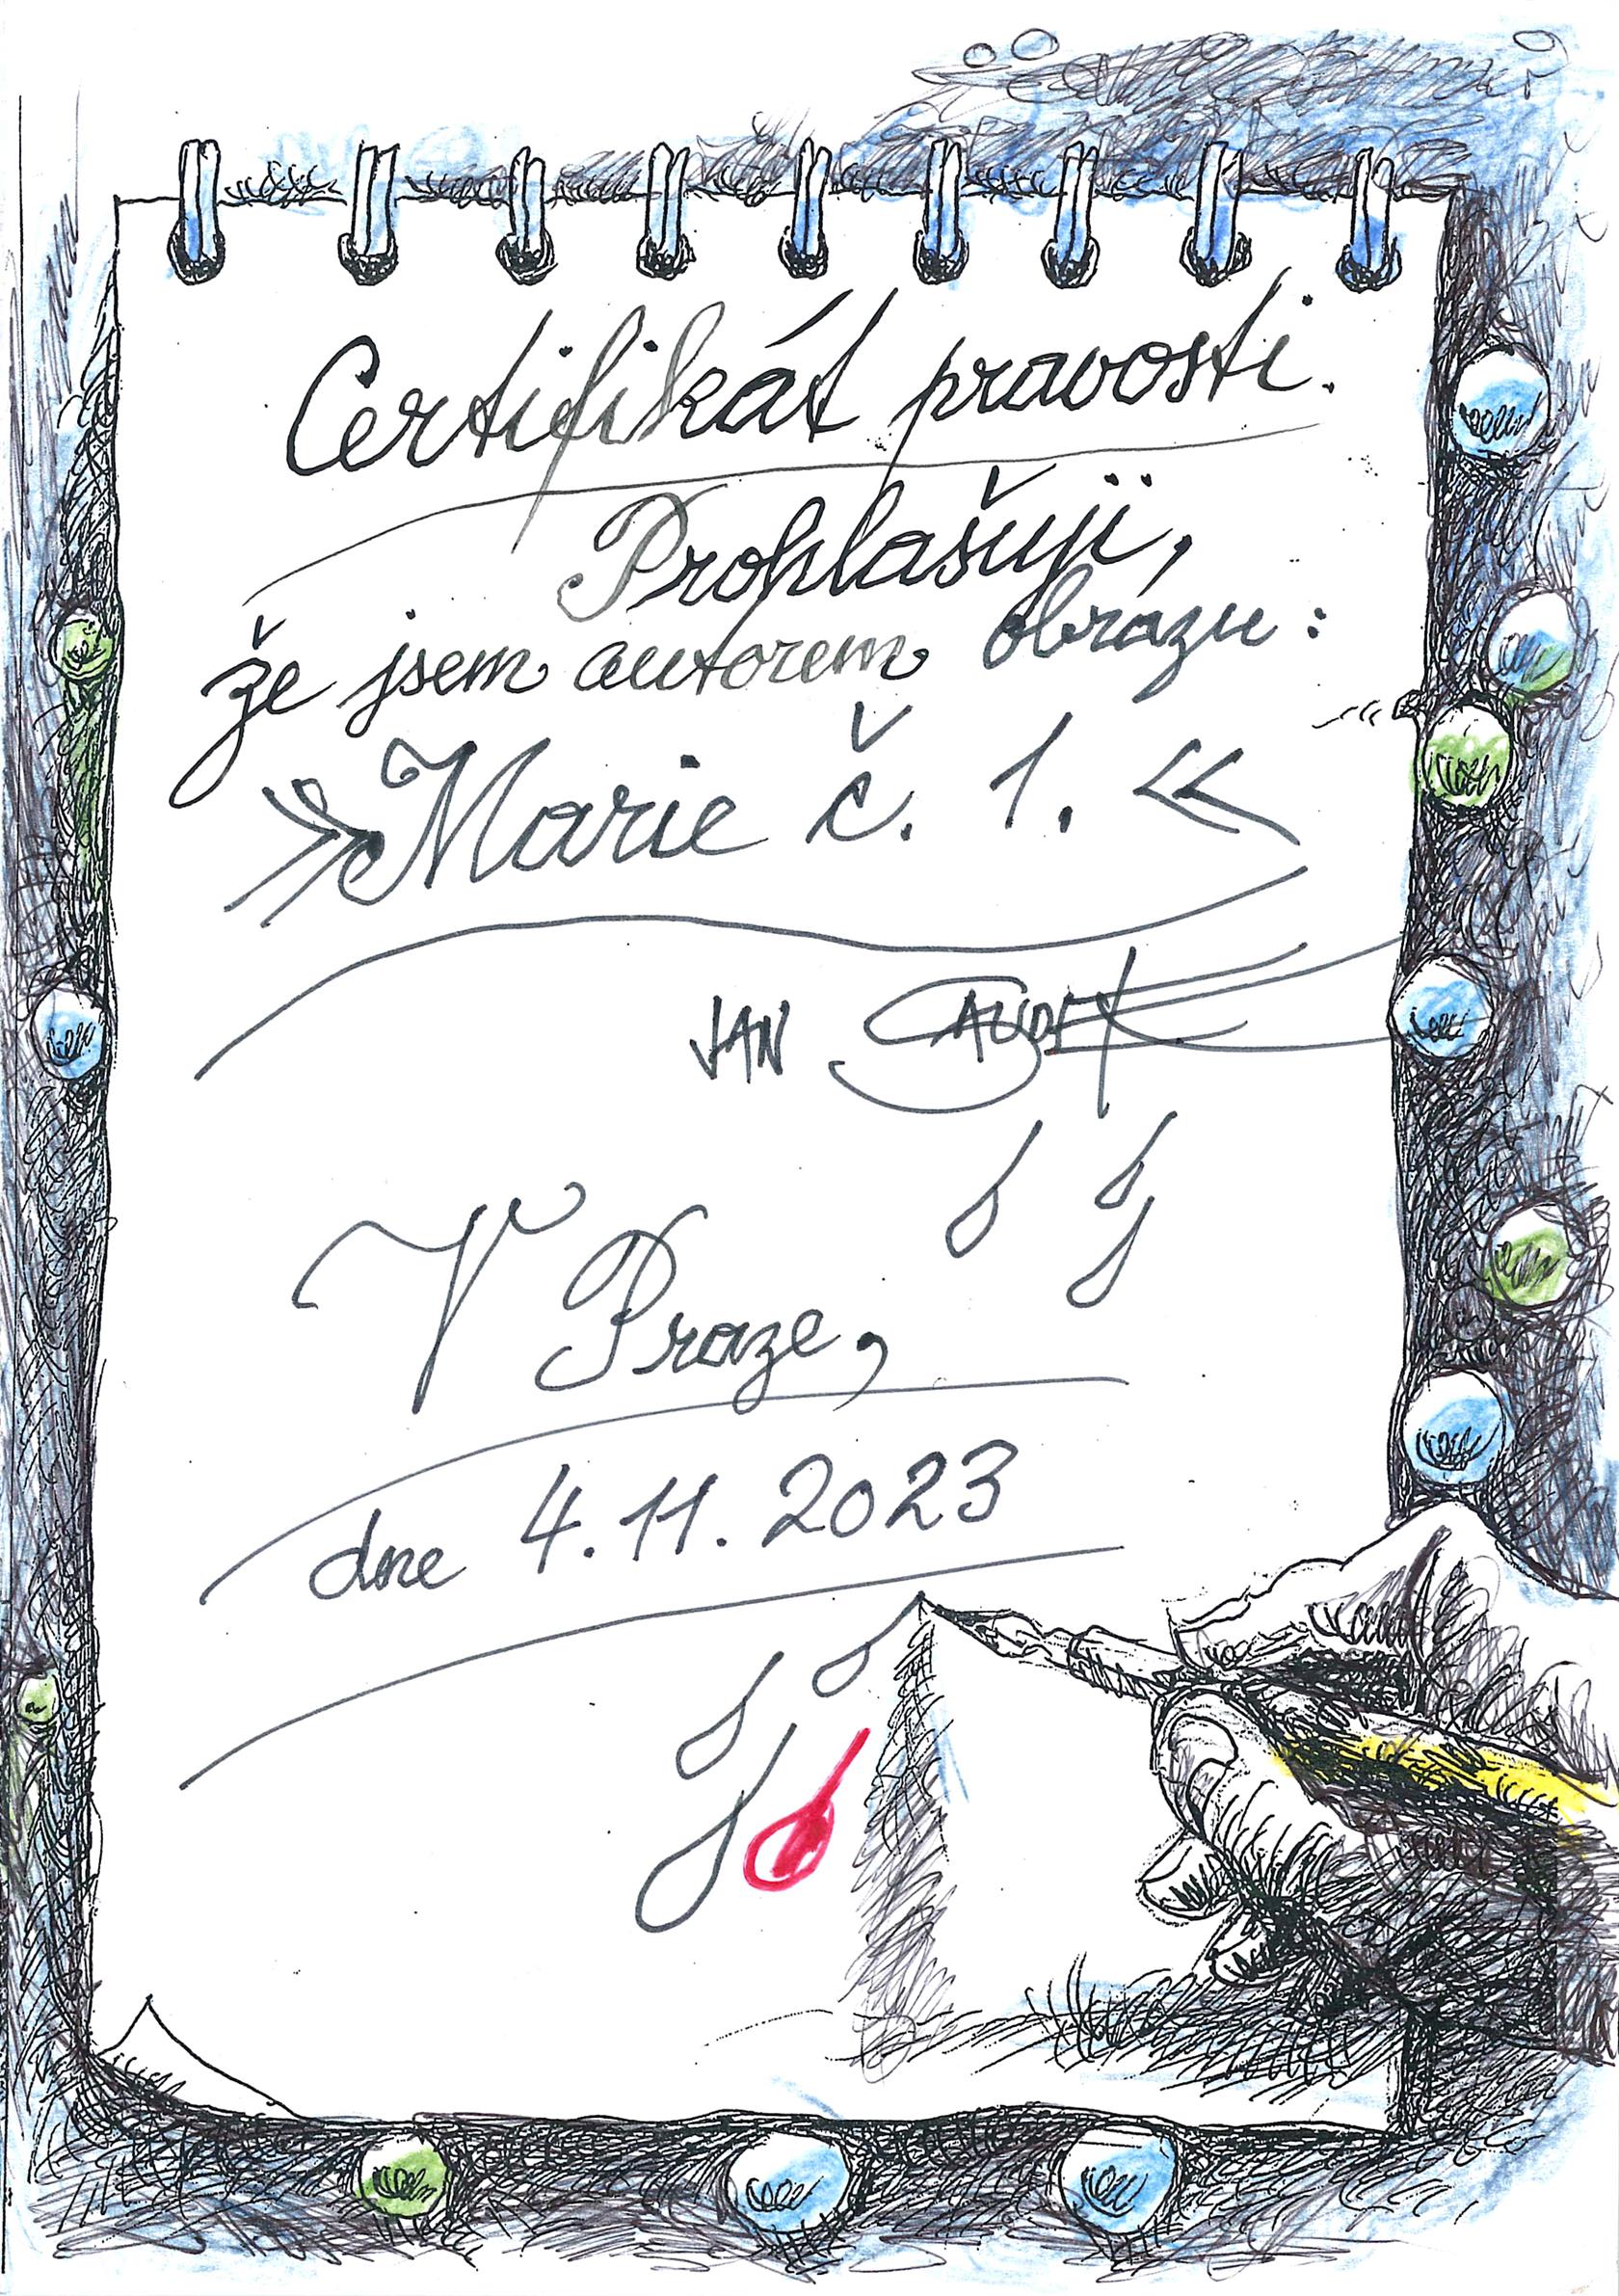 Certifikát pravosti.
Prohlašuji,
že jsem autorem obrazu:
»Marie č. 1.«
JAN SAUDEK
V Praze,
dne 4.11.2023